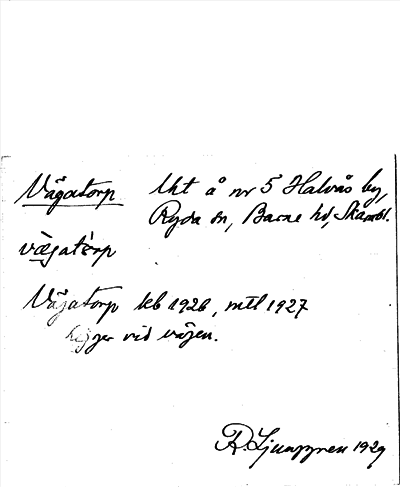 Vägatorp lht å nr 5 Halvås by,
Ryda sn, Barne hd, Skarabl.
vægatårp
Vägatorp kb 1926, mtl 1927
ligger vid vägen.
R. Ljunggren 1929